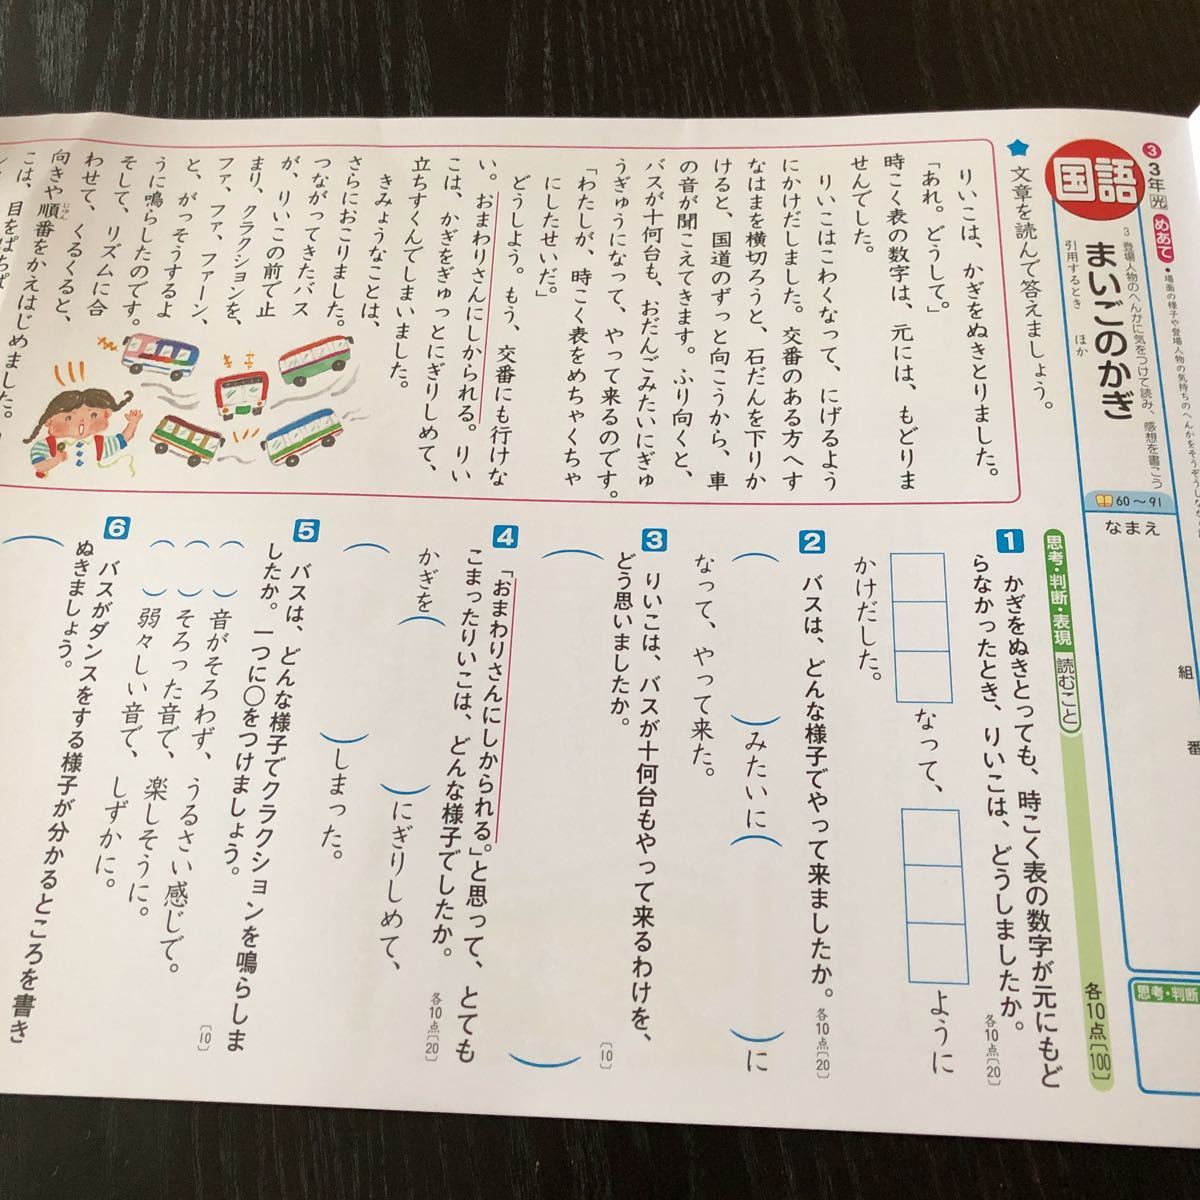 3
3年
光
めあて
●場面の様子や登場人物の気持ちのへんかをそうぞうしな
国語
3
登場人物のへんかに気をつけて読み、感想を書こう
まいごのかぎ
引用するとき
ほか
60〜91
なまえ
組
番
思考・判断
★文章を読んで答えましょう。
りいこは、かぎをぬきとりました。
「あれ。どうして。」
時こく表の数字は、元には、もどりま
せんでした。
りいこはこわくなって、にげるよう
にかけだしました。交番のある方へす
なはまを横切ろうと、石だんを下りか
けると、国道のずっと向こうから、車
の音が聞こえてきます。ふり向くと、
バスが十何台も、おだんごみたいにぎゅ
うぎゅうになって、やって来るのです。
「わたしが、時こく表をめちゃくちゃ
にしたせいだ」
どうしよう。もう、交番にも行けな
い。おまわりさんにしかられる。りい
こは、かぎをぎゅっとにぎりしめて、
立ちすくんでしまいました。
きみょうなことは、
さらにおこりました。
つながってきたバス
が、りいこの前で止
まり、クラクションを、
ファ、ファ、ファーン、
と、がっそうするよ
うに鳴らしたのです。
そして、リズムに合
わせて、くるくると、
向きや順番をかえはじめました。
じゅん
こは、目をぱちぱ
思考・判断・表現
読むこと
各10点〔100〕
1
かぎをぬきとっても、時こく表の数字が元にもど
らなかったとき、りいこは、どうしましたか。
各10点〔20〕
なって、
ように
かけだした。
2
バスは、どんな様子でやって来ましたか。
各10点〔20〕
（　）みたいに（　）に
なって、やって来た。
3
りいこは、バスが十何台もやって来るわけを、
どう思いましたか。
〔10〕
（　）
4
「おまわりさんにしかられる。」と思って、とても
こまったりいこは、どんな様子でしたか。
各10点〔20〕
かぎを（　）にぎりしめて、
（　）しまった。
5
バスは、どんな様子でクラクションを鳴らしま
したか。一つに○をつけましょう。
〔10〕
（　）音がそろわず、うるさい感じで。
（　）そろった音で、楽しそうに。
（　）弱々しい音で、しずかに。
6
バスがダンスをする様子が分かるところを書き
ぬきましょう。